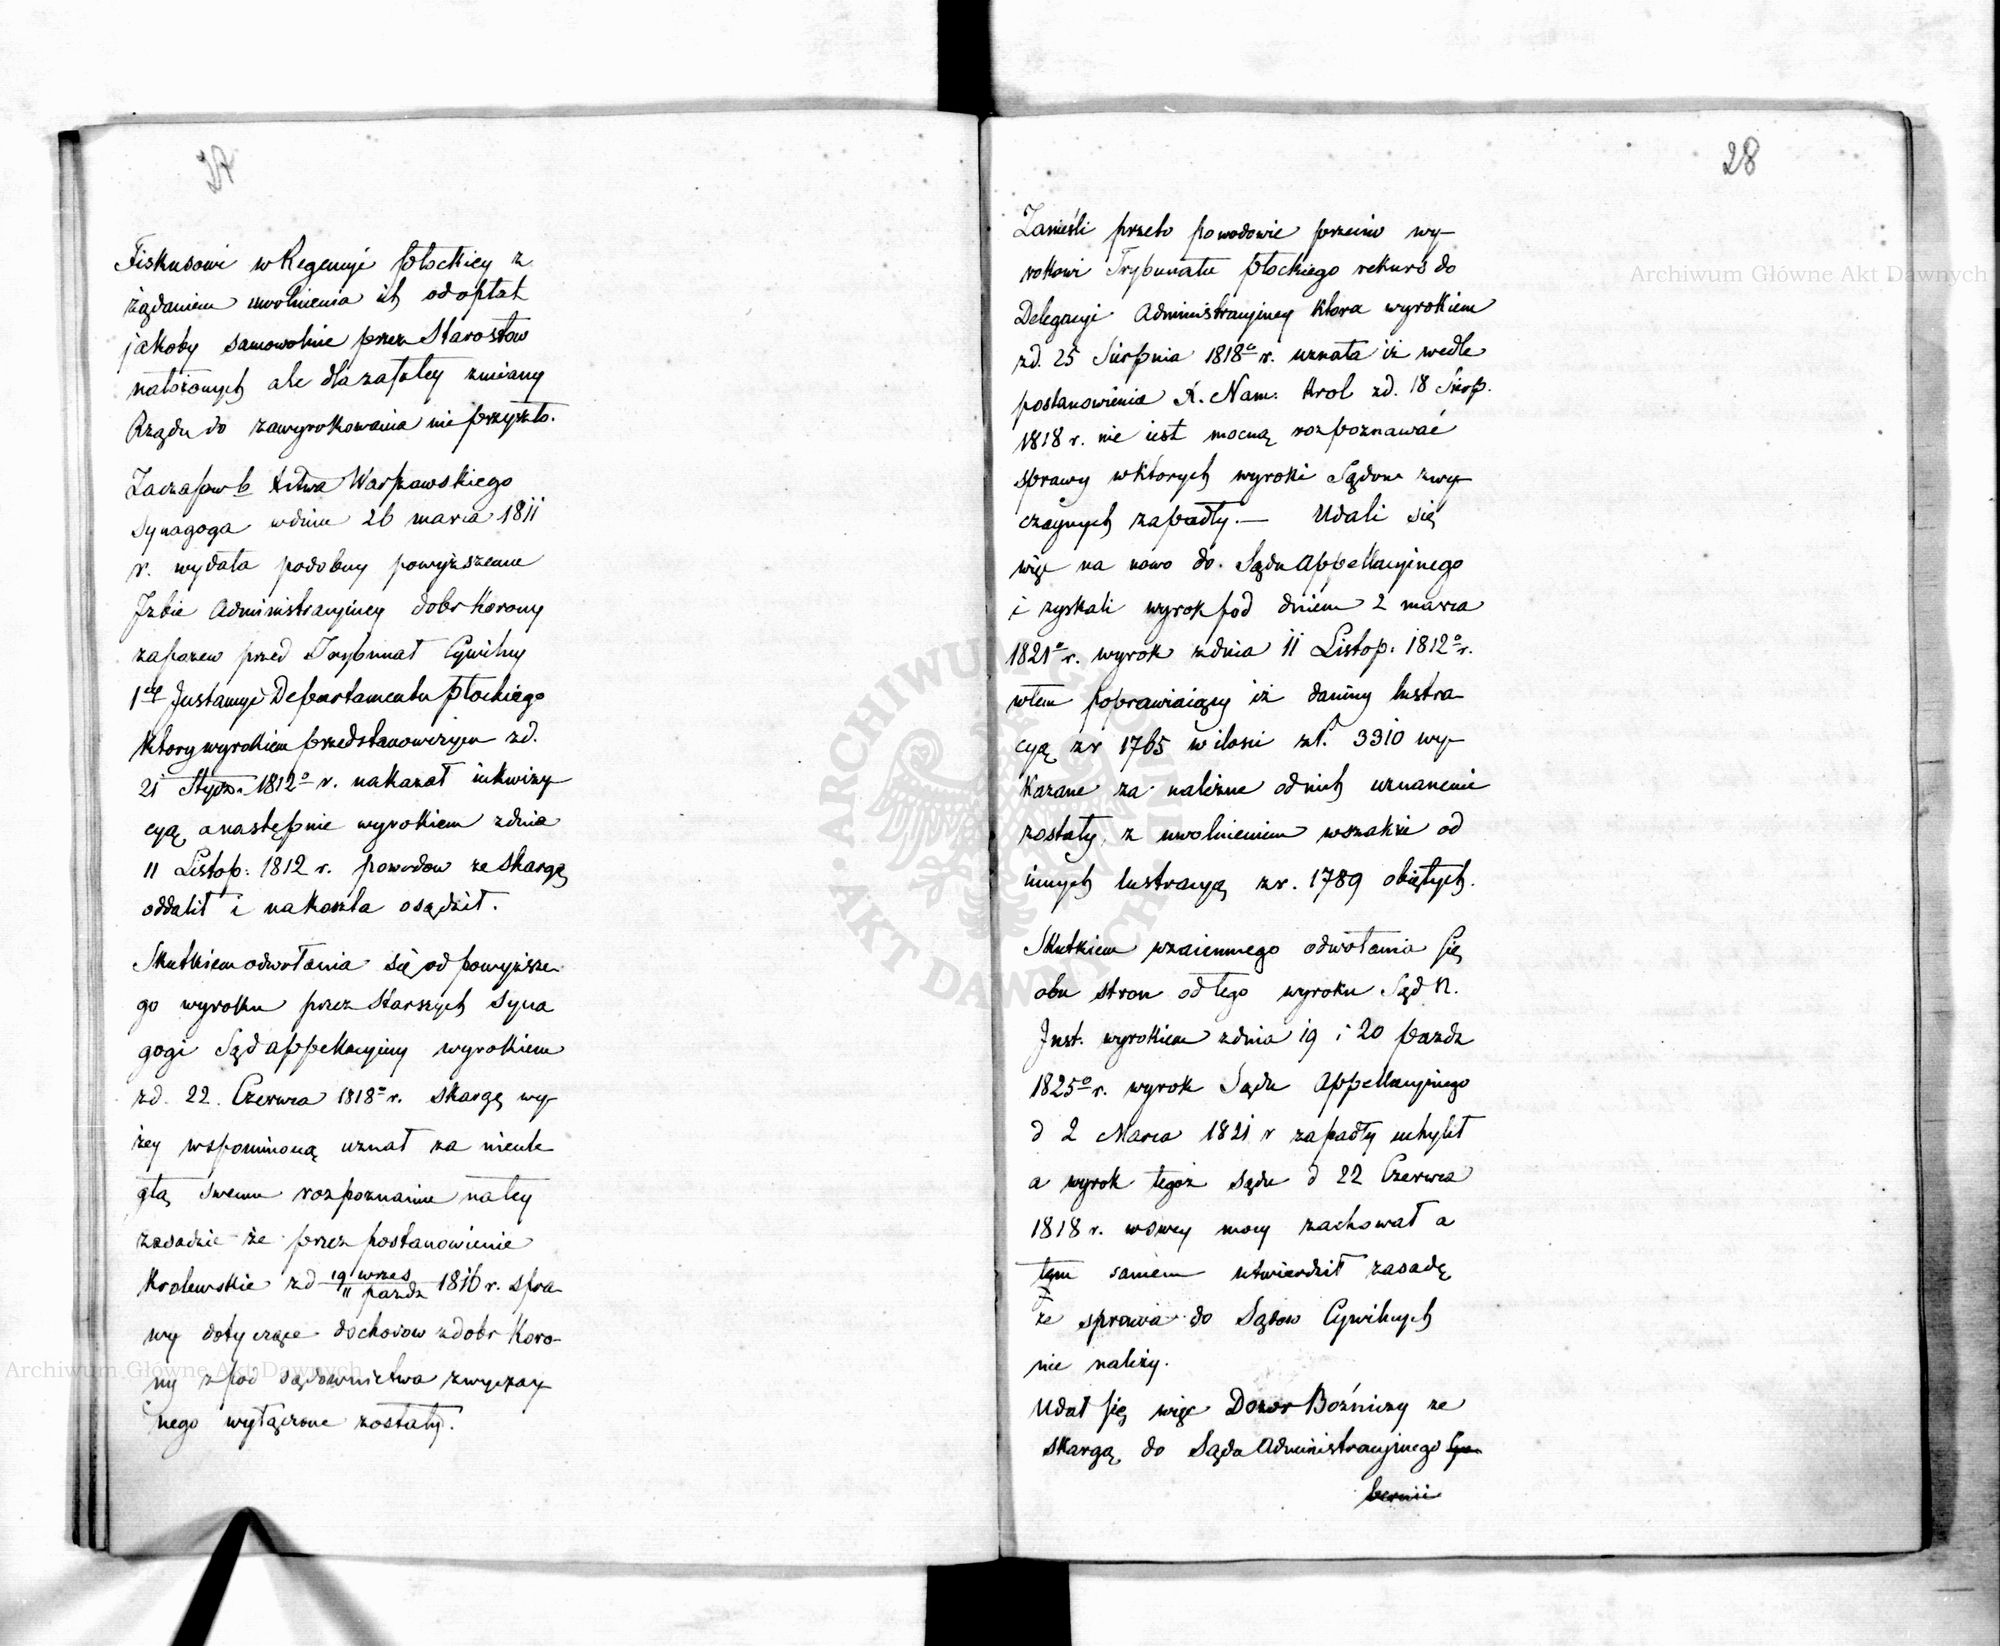 27
Fiskusowi w Regencyi Płockiey z
żądaniem uwolnienia ich od opłat
jakoby samowolnie przez Starostow
nałożonych ale dla zaszłey zmiany
Rządu do zawyrokowania nie przyszło.
Za czasow b. Xstwa Warszawskiego
Synagoga w dniu 26 marca 1811
r. wydała podobny powyższemu
Izbie Administracyiney dobr Korony
zapozew przed Trybunał Cywilny
1ey Instancyi Departamentu Płockiego
ktory wyrokiem przedstanowczym z d.
21 Stycz. 1812o r. nakazał inkwizy-
cyą a następnie wyrokiem z dnia
11 Listop: 1812 r. powodow ze skargą
oddalił i na koszta osądził.
Skutkiem odwołania się od powyższe-
go wyroku przez Starszych Syna
gogi Sąd Appellacyiny wyrokiem
z d. 22. Czerwca 1818o r. skargę wy-
żey wspomnioną uznał za nieule
głą swemu rozpoznaniu na tey
zasadzie że przez postanowienie
Krolewskie z d 19 wrzes / 11 pazdz 1816 r. spra-
wy dotyczące dochodow z dobr Koro-
ny z pod sądownictwa zwyczay-
nego wyłączone zostały.
28
Zanieśli przeto powodowie przeciw wy-
rokowi Trybunału Płockiego rekurs do
Delegacyi Administracyiney ktora wyrokiem
z d. 25 Sierpnia 1818o r. uznała iż wedle
postanowienia X. Nam: Krol z d. 18 Sierp.
1818 r. nie iest mocną rozpoznawać
sprawy w ktorych wyroki Sądow zwy-
czaynych zapadły. — Udali się
więc na nowo do Sądu Appellacyinego
i zyskali wyrok pod dniem 2 marca
1821o r. wyrok z dnia 11 Listop: 1812o r.
w tem poprawiaiący iż daniny lustra-
cyą z r 1765 w ilosci zł. 3310 wy-
kazane za należne od nich uznanemi
zostały z uwolnieniem wszakże od
innych lustracyą z r. 1789 obiętych.
Skutkiem wzaiemnego odwołania się
obu stron od tego wyroku Sąd N.
Inst. wyrokiem z dnia 19 i 20 Pazdz
1825o r. wyrok Sądu Appellacyinego
d 2 Marca 1821 r zapadły uchylił
a wyrok tegoż Sądu d 22 Czerwca
1818 r. w swey mocy zachował a
tym samem utwierdził zasadę
że sprawa do Sądow Cywilnych
nie należy.
Udał się więc Dozor Bożniczy ze
skargą do Sądu Administracyinego Gu-
bernii
Archiwum Główne Akt Dawnych
Archiwum Główne Akt Dawnych
ARCHIWUM GŁÓWNE · AKT DAWNYCH ·